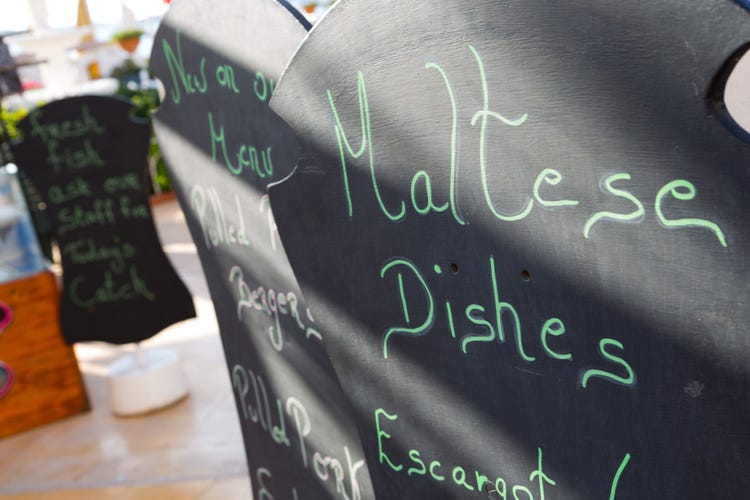 fresh
fish
ask our
Staff for
Todays
Catch
New on our
Menu
Pulled
Bergers
Pulled Pork
Maltese
Dishes
Escargot